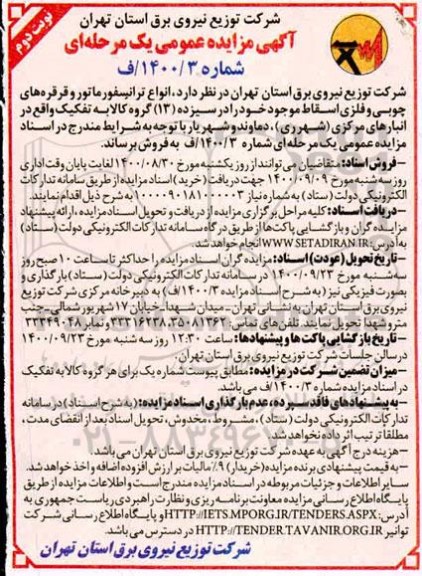 شرکت توزیع نیروی برق استان تهران
نوبت دوم
آگهی مزایده عمومی یک مرحله‌ای
شماره ۱۴۰۰/۳/ف
شرکت توزیع نیروی برق استان تهران در نظر دارد، انواع ترانسفورماتور و قرقره‌های
چوبی و فلزی اسقاط موجود خود را در سیزده (۱۳) گروه کالا به تفکیک واقع در
انبارهای مرکزی (شهرری)، دماوند و شهریار با توجه به شرایط مندرج در اسناد
مزایده عمومی یک مرحله‌ای شماره ۱۴۰۰/۳/ف به فروش برساند.
– فروش اسناد: متقاضیان می‌توانند از روز یکشنبه مورخ ۱۴۰۰/۰۸/۳۰ لغایت پایان وقت اداری
روز سه‌شنبه مورخ ۱۴۰۰/۰۹/۰۹ جهت دریافت (خرید) اسناد مزایده از طریق سامانه تدارکات
الکترونیکی دولت (ستاد) به شماره نیاز ۱۰۰۰۰۹۰۱۸۱۰۰۰۰۰۳ به شرح ذیل اقدام نمایند.
– دریافت اسناد: کلیه مراحل برگزاری مزایده از دریافت و تحویل اسناد مزایده، ارائه پیشنهاد
مزایده‌گران و بازگشایی پاکت‌ها از طریق درگاه سامانه تدارکات الکترونیکی دولت (ستاد)
به آدرس: WWW.SETADIRAN.IR انجام خواهد شد.
– تاریخ تحویل (عودت) اسناد: مزایده‌گران اسناد مزایده را حداکثر تا ساعت ۱۰ صبح روز
سه‌شنبه مورخ ۱۴۰۰/۰۹/۲۳ در سامانه تدارکات الکترونیکی دولت (ستاد) بارگذاری و
بصورت فیزیکی نیز (به شرح اسناد مزایده ۱۴۰۰/۳/ف) به دبیرخانه مرکزی شرکت توزیع
نیروی برق استان تهران به نشانی تهران- میدان شهدا- خیابان ۱۷ شهریور شمالی- جنب
مترو شهدا تحویل نمایند. تلفن‌های تماس: ۳۵۰۸۱۳۶۲، ۳۳۳۱۶۲۳۸ و نمابر ۳۳۳۴۹۰۴۸
– تاریخ بازگشایی پاکت‌ها و پیشنهادها: ساعت ۱۲:۳۰ روز سه شنبه مورخ ۱۴۰۰/۰۹/۲۳
در سالن جلسات شرکت توزیع نیروی برق استان تهران.
– میزان تضمین شرکت در مزایده: مطابق پیوست شماره یک برای هر گروه کالا به تفکیک
در اسناد مزایده شماره ۱۴۰۰/۳/ف می‌باشد.
– به پیشنهادهای فاقد سپرده، عدم بارگذاری اسناد مزایده: (به شرح اسناد) در سامانه
تدارکات الکترونیکی دولت (ستاد)، مشروط، مخدوش، تحویل اسناد بعد از انقضای مدت،
مطلقا ترتیب اثر داده نخواهد شد.
– هزینه درج آگهی به عهده شرکت توزیع نیروی برق استان تهران می‌باشد.
– به قیمت پیشنهادی برنده مزایده (خریدار) ۹٪ مالیات بر ارزش افزوده اضافه و اخذ خواهد شد.
سایر اطلاعات و جزئیات مربوطه در اسناد مزایده مندرج است و اطلاعات مزایده از طریق
پایگاه اطلاع رسانی مزایده معاونت برنامه‌ریزی و نظارت راهبردی ریاست جمهوری به
آدرس: HTTP://IETS.MPORG.IR/TENDERS.ASPX و پایگاه اطلاع رسانی شرکت
توانیر HTTP://TENDER.TAVANIR.ORG.IR در دسترس می‌باشد.
شرکت توزیع نیروی برق استان تهران